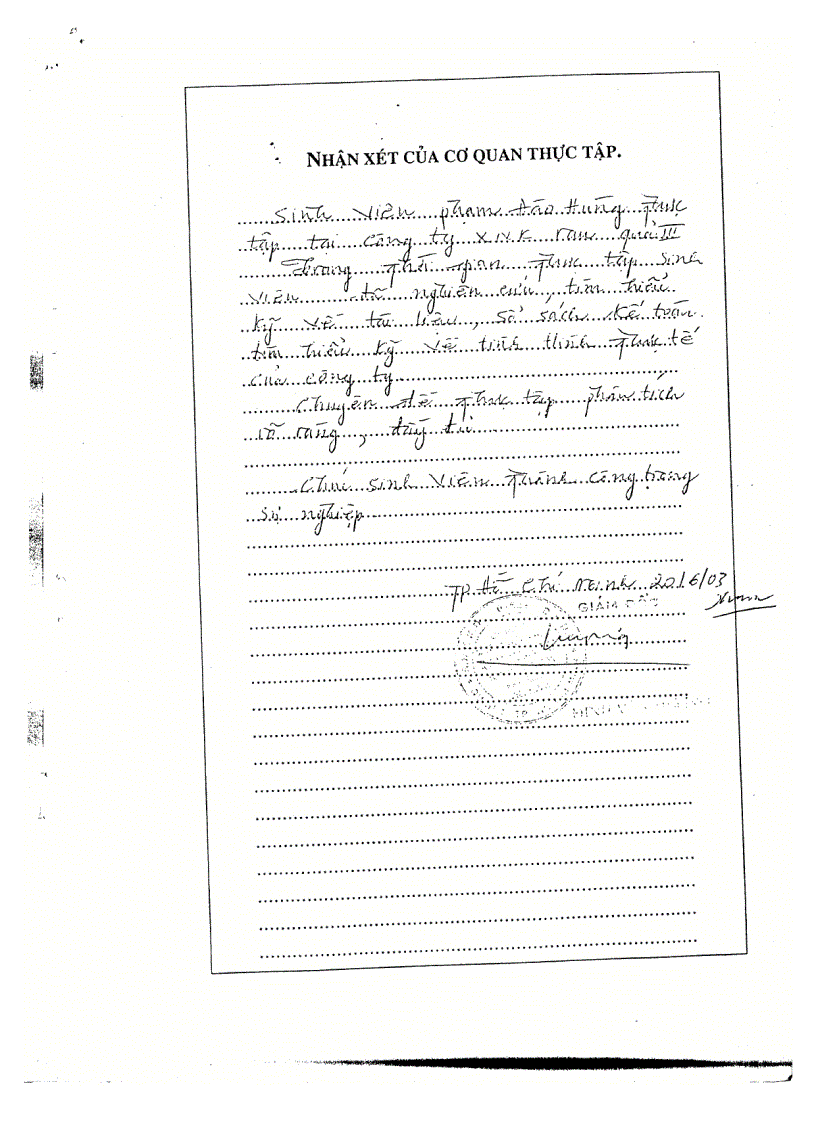 NHẬN XÉT CỦA CƠ QUAN THỰC TẬP.
Sinh viên phạm Đào Hưng thực
tập tại công ty XNK rau quả III
Trong thời gian thực tập sinh
viên đã nghiên cứu, tìm hiểu
kỹ về tài liệu, sổ sách kế toán
tìm hiểu kỹ về tình hình thực tế
của công ty
Chuyên đề thực tập phân tích
rõ ràng, đầy đủ
Chúc sinh viên thành công trong
sự nghiệp
TP Hồ Chí Minh 20/6/03
GIÁM ĐỐC